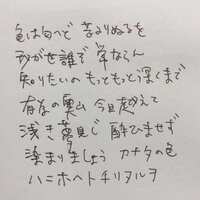 色は匂へど 芳りぬるを
我が世誰ぞ 常ならん
知りたいの もっともっと深くまで
有為の奥山 今日越えて
浅き夢見じ 酔ひもせず
染まりましょう カナタの色
ハニホヘトチリヌルヲ